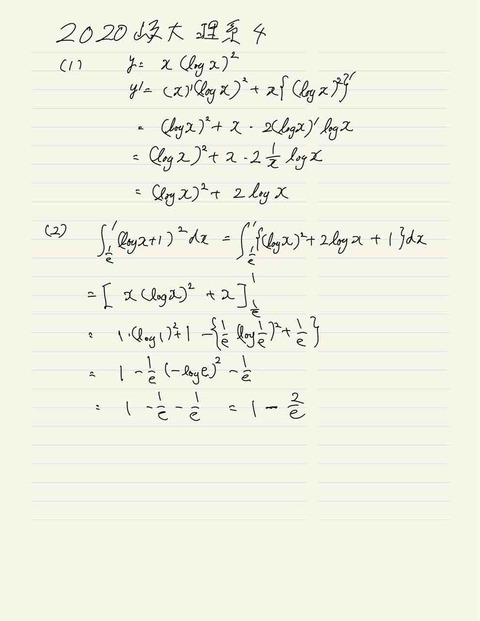 2020 大 理系 4
(1) y = x (log x)²
y' = (x)'(log x)² + x{(log x)²}'
= (log x)² + x · 2(log x)' log x
= (log x)² + x · 2 1/x log x
= (log x)² + 2 log x
(2) ∫_{1/e}^{1} (log x + 1)² dx = ∫_{1/e}^{1} {(log x)² + 2 log x + 1} dx
= [ x (log x)² + x ]_{1/e}^{1}
= 1·(log 1)² + 1 - {1/e (log 1/e)² + 1/e}
= 1 - 1/e (-log e)² - 1/e
= 1 - 1/e - 1/e = 1 - 2/e